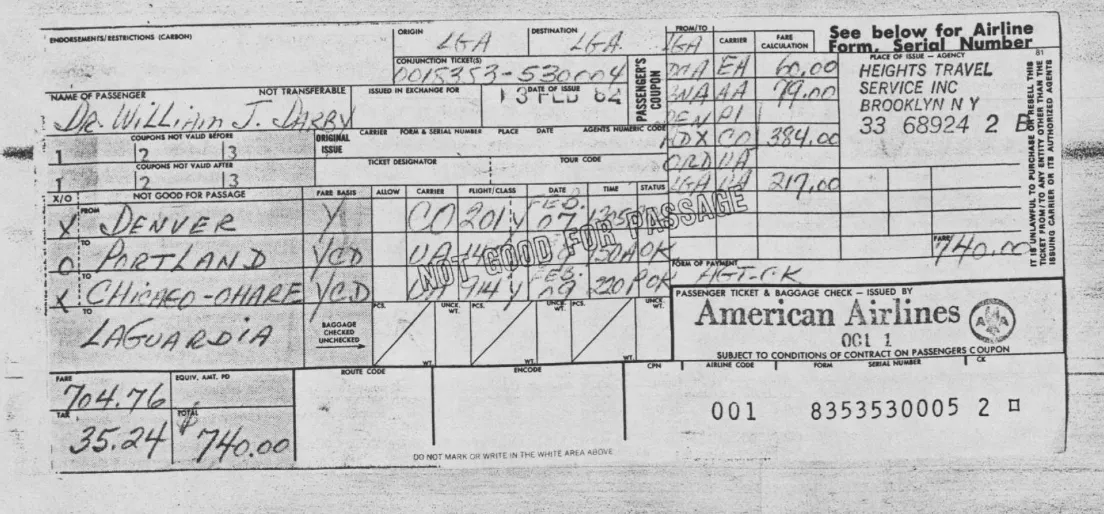 ENDORSEMENTS/RESTRICTIONS (CARBON)
ORIGIN LGA
DESTINATION LGA
FROM/TO LGA
CARRIER
FARE CALCULATION
See below for Airline
Form, Serial Number
81
CONJUNCTION TICKET(S)
0018353-530004
PASSENGER'S COUPON
EA 60.00
PLACE OF ISSUE — AGENCY
HEIGHTS TRAVEL
SERVICE INC
BROOKLYN N Y
33 68924 2
NAME OF PASSENGER NOT TRANSFERABLE
DR. WILLIAM J. DARBY
ISSUED IN EXCHANGE FOR
DATE OF ISSUE
13 FEB 82
AA 79.00
COUPONS NOT VALID BEFORE
1 2 3
ORIGINAL ISSUE
CARRIER FORM & SERIAL NUMBER PLACE DATE AGENTS NUMERIC CODE
PDX CO 384.00
COUPONS NOT VALID AFTER
1 2 3
TICKET DESIGNATOR
TOUR CODE
ORD UA
LGA UA 217.00
X/O NOT GOOD FOR PASSAGE FARE BASIS ALLOW CARRIER FLIGHT/CLASS DATE TIME STATUS
X FROM DENVER Y CO 201 Y FEB. 07
O TO PORTLAND YCD UA OK
X TO CHICAGO-OHARE YCD Y FEB. 09 220P OK
NOT GOOD FOR PASSAGE
TO LAGUARDIA
FARE 740.00
FORM OF PAYMENT
AGT.CK
IT IS UNLAWFUL TO PURCHASE OR RESELL THIS
TICKET FROM/TO ANY ENTITY OTHER THAN THE
ISSUING CARRIER OR ITS AUTHORIZED AGENTS
BAGGAGE CHECKED UNCHECKED
PCS. WT. UNCK. WT. PCS. WT. UNCK. WT. PCS. WT. UNCK. WT.
PASSENGER TICKET & BAGGAGE CHECK — ISSUED BY
American Airlines
001 1
AA
SUBJECT TO CONDITIONS OF CONTRACT ON PASSENGERS COUPON
FARE 704.76
EQUIV. AMT. PD
ROUTE CODE
ENCODE
CPN
AIRLINE CODE
FORM
SERIAL NUMBER
CK
TAX 35.24
TOTAL $740.00
001 8353530005 2
DO NOT MARK OR WRITE IN THE WHITE AREA ABOVE